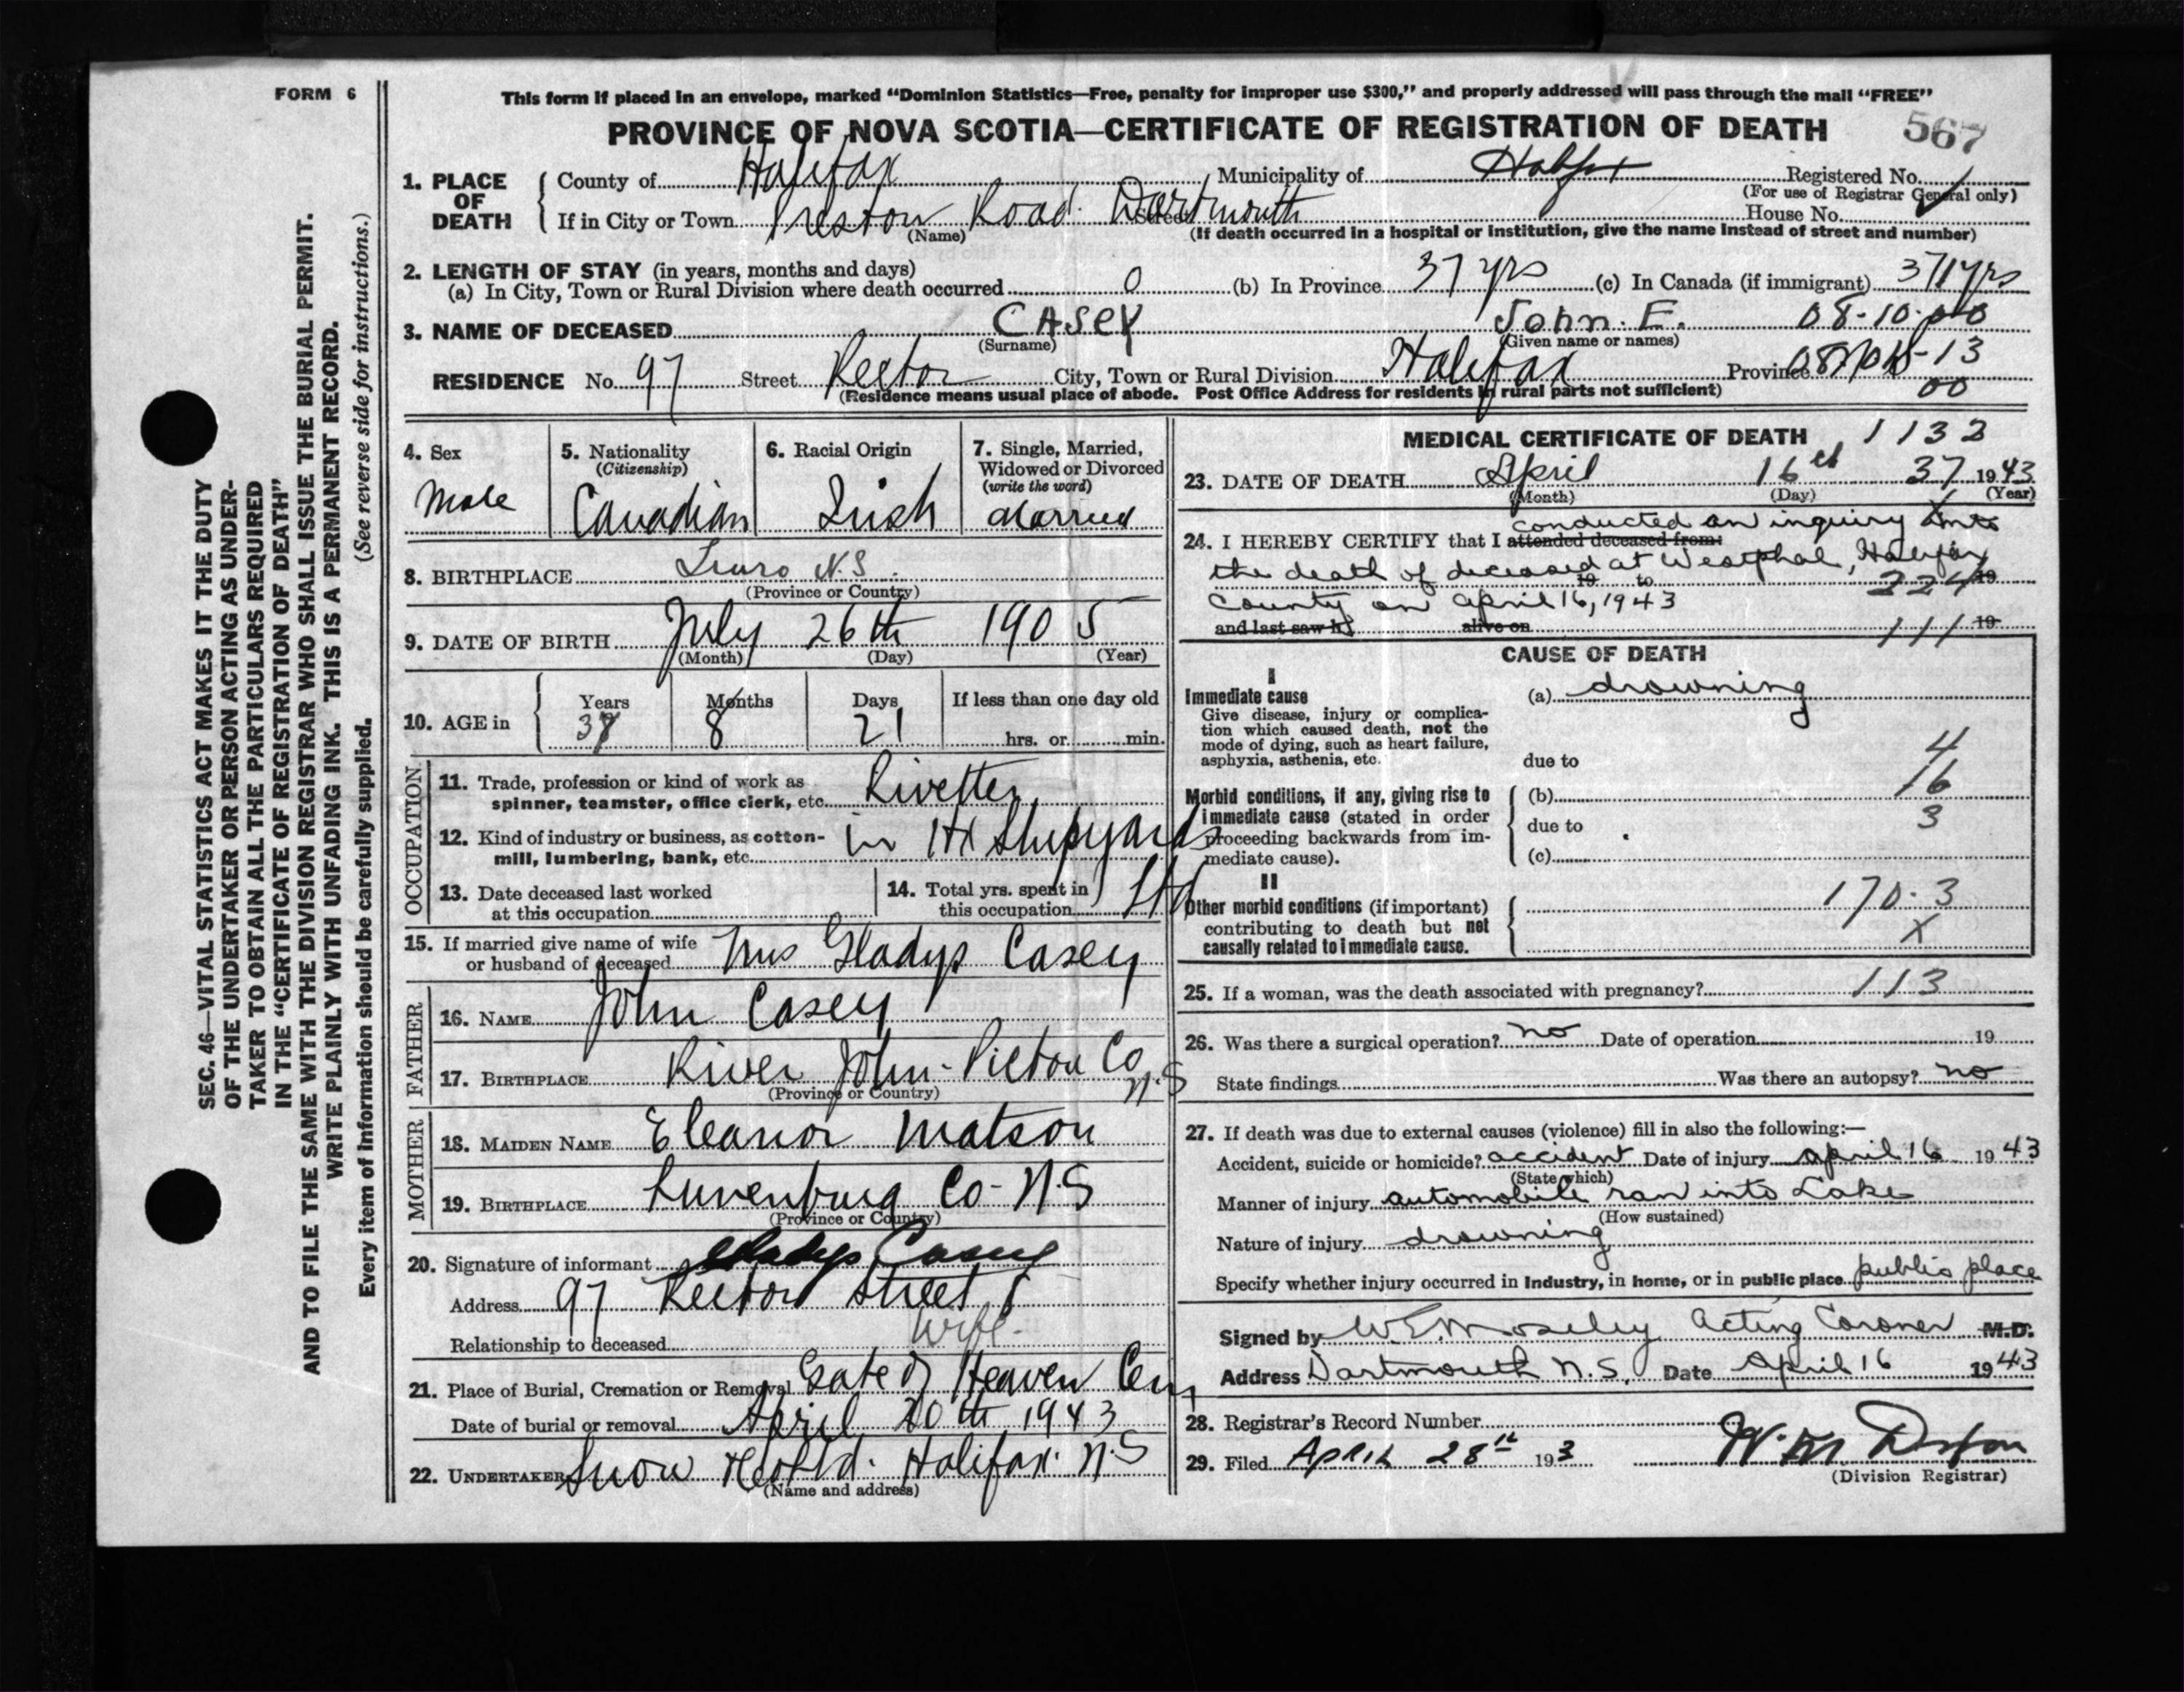 FORM 6
This form if placed in an envelope, marked “Dominion Statistics—Free, penalty for improper use $300,” and properly addressed will pass through the mail “FREE”
PROVINCE OF NOVA SCOTIA—CERTIFICATE OF REGISTRATION OF DEATH 567
SEC. 46—VITAL STATISTICS ACT MAKES IT THE DUTY
OF THE UNDERTAKER OR PERSON ACTING AS UNDER-
TAKER TO OBTAIN ALL THE PARTICULARS REQUIRED
IN THE “CERTIFICATE OF REGISTRATION OF DEATH”
AND TO FILE THE SAME WITH THE DIVISION REGISTRAR WHO SHALL ISSUE THE BURIAL PERMIT.
WRITE PLAINLY WITH UNFADING INK. THIS IS A PERMANENT RECORD.
Every item of information should be carefully supplied. (See reverse side for instructions.)
1. PLACE OF DEATH
County of Halifax Municipality of Halifax Registered No.
(For use of Registrar General only)
If in City or Town Preston Road Dartmouth Street House No.
(Name) (If death occurred in a hospital or institution, give the name instead of street and number)
2. LENGTH OF STAY (in years, months and days)
(a) In City, Town or Rural Division where death occurred 0 (b) In Province 37 yrs (c) In Canada (if immigrant) 37 yrs
3. NAME OF DECEASED CASEY John. E. 08-10-
(Surname) (Given name or names)
RESIDENCE No. 97 Street Rector City, Town or Rural Division Halifax Province
-13
00
(Residence means usual place of abode. Post Office Address for residents in rural parts not sufficient)
4. Sex
Male
5. Nationality
(Citizenship)
Canadian
6. Racial Origin
Irish
7. Single, Married,
Widowed or Divorced
(write the word)
Married
8. BIRTHPLACE Truro N.S.
(Province or Country)
9. DATE OF BIRTH July 26th 1905
(Month) (Day) (Year)
10. AGE in
Years Months Days If less than one day old
37 8 21 hrs. or min.
OCCUPATION
11. Trade, profession or kind of work as
spinner, teamster, office clerk, etc. Rivetter
12. Kind of industry or business, as cotton-
mill, lumbering, bank, etc. in Hx Shipyards
Ltd
13. Date deceased last worked
at this occupation
14. Total yrs. spent in
this occupation
15. If married give name of wife
or husband of deceased Mrs Gladys Casey
FATHER
16. NAME John Casey
17. BIRTHPLACE River John - Pictou Co
N.S
(Province or Country)
MOTHER
18. MAIDEN NAME Eleanor Matson
19. BIRTHPLACE Lunenburg Co - N.S
(Province or Country)
20. Signature of informant Gladys Casey
Address 97 Rector Street
Relationship to deceased Wife
21. Place of Burial, Cremation or Removal Gate of Heaven Cem
Date of burial or removal April 20th 1943
22. UNDERTAKER Snow & Co Ltd. Halifax. N.S
(Name and address)
MEDICAL CERTIFICATE OF DEATH 1132
23. DATE OF DEATH April 16th 37 1943
(Month) (Day) (Year)
conducted an inquiry into
24. I HEREBY CERTIFY that I attended deceased from:
the death of deceased at Westphal, Halifax
19 to 19
County on April 16, 1943
and last saw h alive on 19
111
CAUSE OF DEATH
I
Immediate cause (a) drowning
Give disease, injury or complica-
tion which caused death, not the
mode of dying, such as heart failure,
asphyxia, asthenia, etc. due to
4
16
3
Morbid conditions, if any, giving rise to
immediate cause (stated in order
proceeding backwards from im-
mediate cause).
(b)
due to
(c)
II
Other morbid conditions (if important)
contributing to death but not
causally related to immediate cause.
170.3
X
25. If a woman, was the death associated with pregnancy? 113
26. Was there a surgical operation? no Date of operation 19
State findings Was there an autopsy? no
27. If death was due to external causes (violence) fill in also the following:—
Accident, suicide or homicide? accident Date of injury April 16 1943
(State which)
Manner of injury automobile ran into Lake
(How sustained)
Nature of injury drowning
Specify whether injury occurred in industry, in home, or in public place public place
Signed by W E Moseley Acting Coroner M.D.
Address Dartmouth N.S. Date April 16 1943
28. Registrar’s Record Number
29. Filed April 28th 193
(Division Registrar)